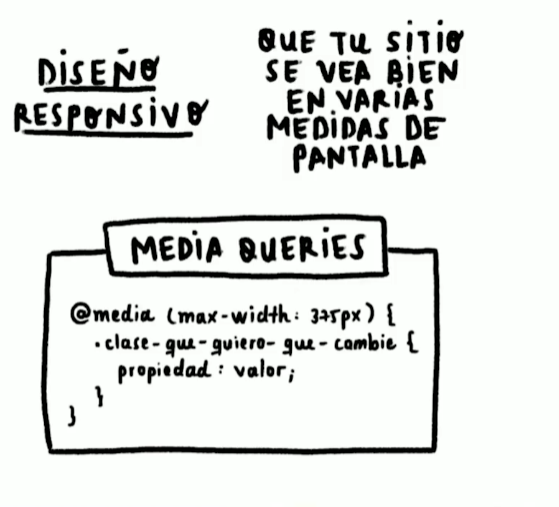 DISEÑO
RESPONSIVO
QUE TU SITIO
SE VEA BIEN
EN VARIAS
MEDIDAS DE
PANTALLA
MEDIA QUERIES
@media (max-width: 375px) {
.clase-que-quiero-que-cambie {
propiedad: valor;
}
}